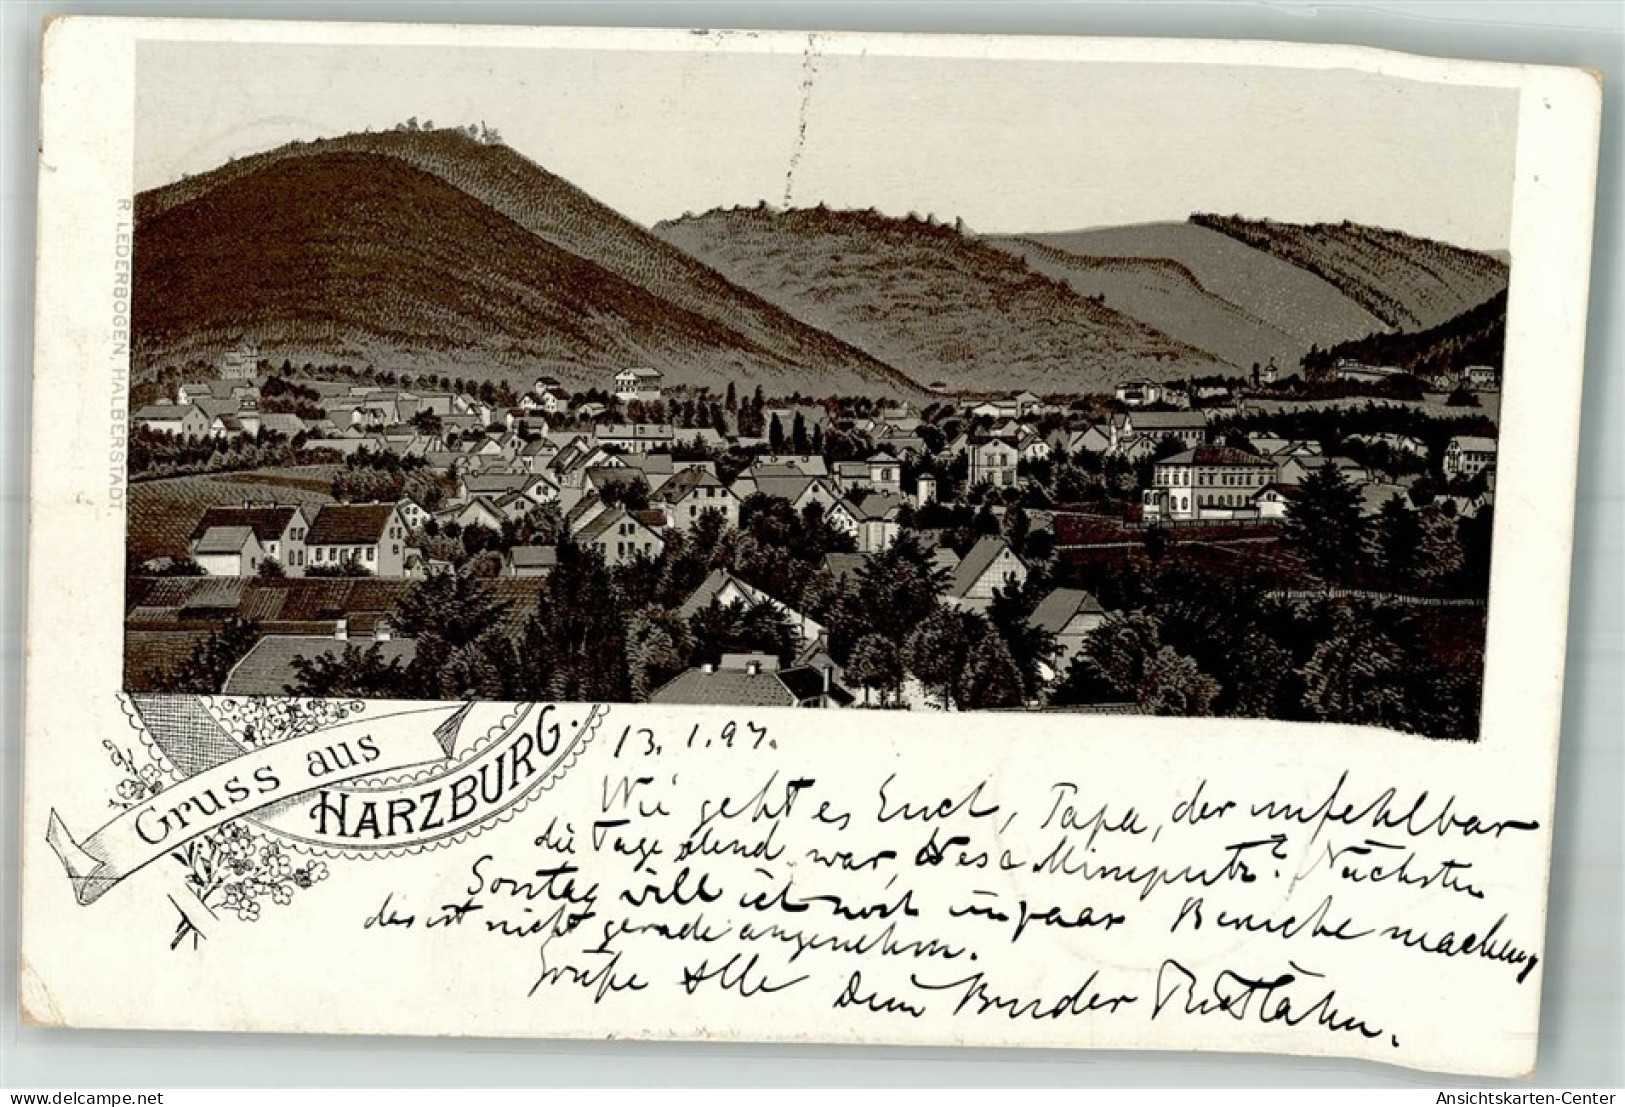 R. LEDERBOGEN, HALBERSTADT.
Gruss aus
HARZBURG.
13. 1. 97.
Wie geht es Euch, Papa, der unfehlbar
die Tage elend war, Minepute? Nächsten
Sontag will ich noch ein paar Besuche machen,
das ist nicht gerade angenehm.
Grüße Alle Dein Bruder
delcampe.net
eoa
Ansichtskarten-Center